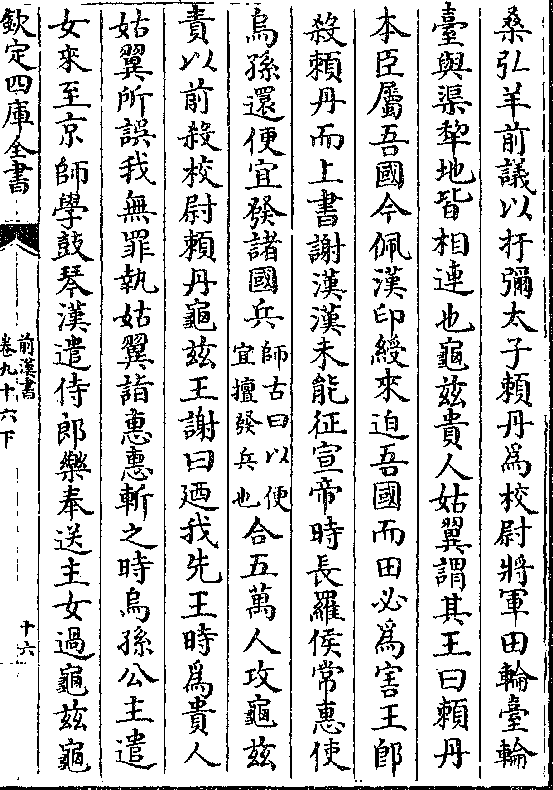 桑弘羊前議以扜彌太子賴丹為校尉將軍田輪臺輪
臺與渠犂地皆相連也龜兹貴人姑翼謂其王曰賴丹
本臣屬吾國今佩漢印綬來迫吾國而田必為害王即
殺賴丹而上書謝漢漢未能征宣帝時長羅侯常惠使
烏孫還便宜發諸國兵師古曰以便宜擅發兵也合五萬人攻龜兹
責以前殺校尉賴丹龜兹王謝曰廼我先王時為貴人
姑翼所誤我無罪執姑翼詣惠惠斬之時烏孫公主遣
女來至京師學鼓琴漢遣侍郎樂奉送主女過龜兹龜
欽定四庫全書
前漢書
卷九十六下
十六